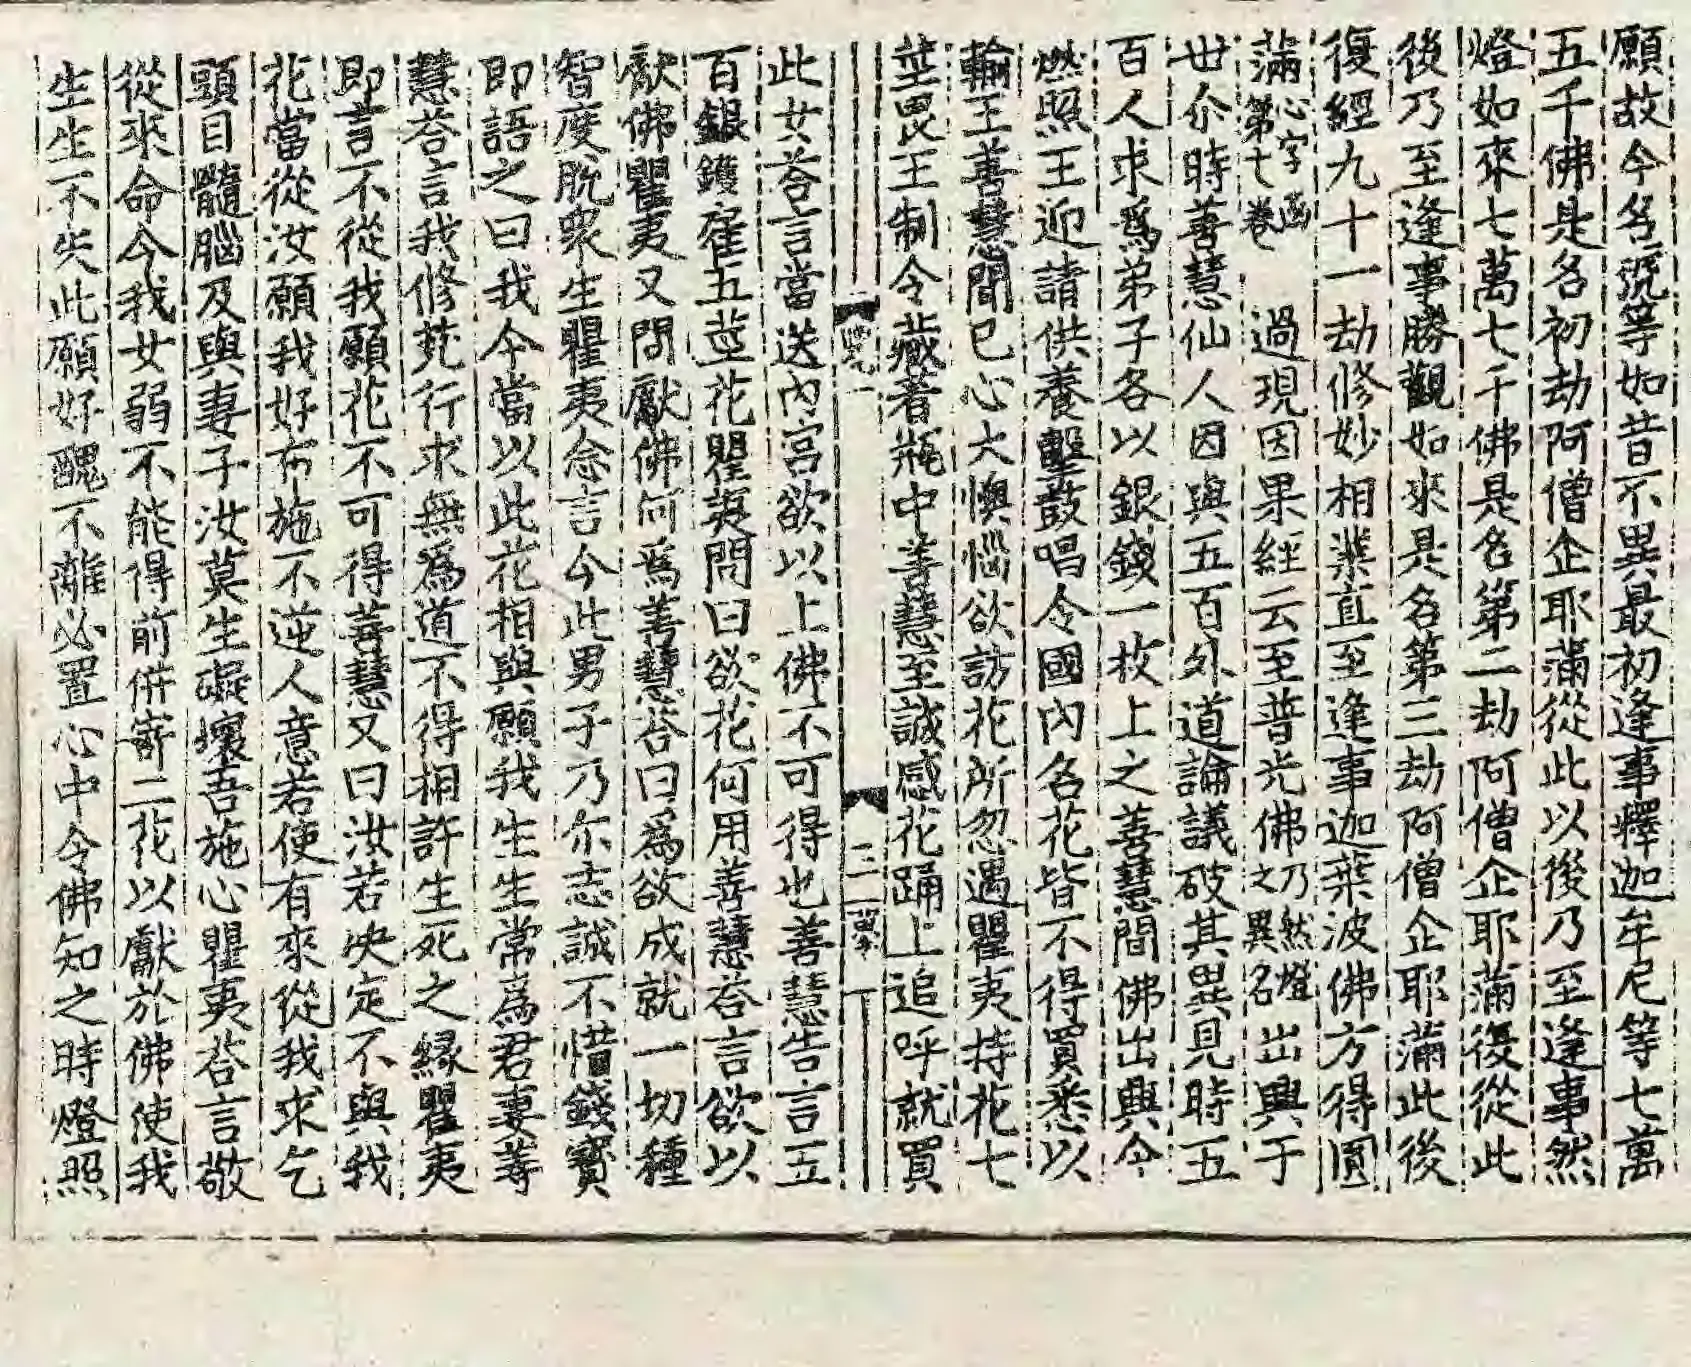 願故今名號等如昔不異最初逢事釋迦牟尼等七萬
五千佛是名初劫阿僧企耶滿從此以後乃至逢事然
燈如來七萬七千佛是名第二劫阿僧企耶滿復從此
後乃至逢事勝觀如來是名第三劫阿僧企耶滿此後
復經九十一劫修妙相業直至逢事迦葉波佛方得圓
滿心字函第七卷 過現因果經云至普光佛乃然燈之異名出興于
世尒時善慧仙人因與五百外道論議破其異見時五
百人求爲弟子各以銀錢一枚上之善慧間佛出興今
燃照王迎請供養擊鼓唱令國內名花皆不得買悉以
輸王善慧聞已心大懊惱欲訪花所忽遇瞿夷持花七
莖畏王制令藏著甁中善慧至誠感花踊上追呼就買
此女荅言當送內宮欲以上佛不可得也善慧告言五
百銀錢雇五莖花瞿夷問曰欲花何用善慧荅言欲以
獻佛瞿夷又問獻佛何爲善慧荅曰爲欲成就一切種
智度脫衆生瞿夷念言今此男子乃尒志誠不惜錢寶
即語之曰我今當以此花相與願我生生常爲君妻善
慧荅言我修梵行求無爲道不得相許生死之緣瞿夷
即言不從我願花不可得善慧又曰汝若決定不與我
花當從汝願我好布施不逆人意若使有來從我求乞
頭目髓腦及與妻子汝莫生礙壞吾施心瞿夷荅言敬
從來命今我女弱不能得前併寄二花以獻於佛使我
生生不失此願好醜不離必置心中令佛知之時燈照